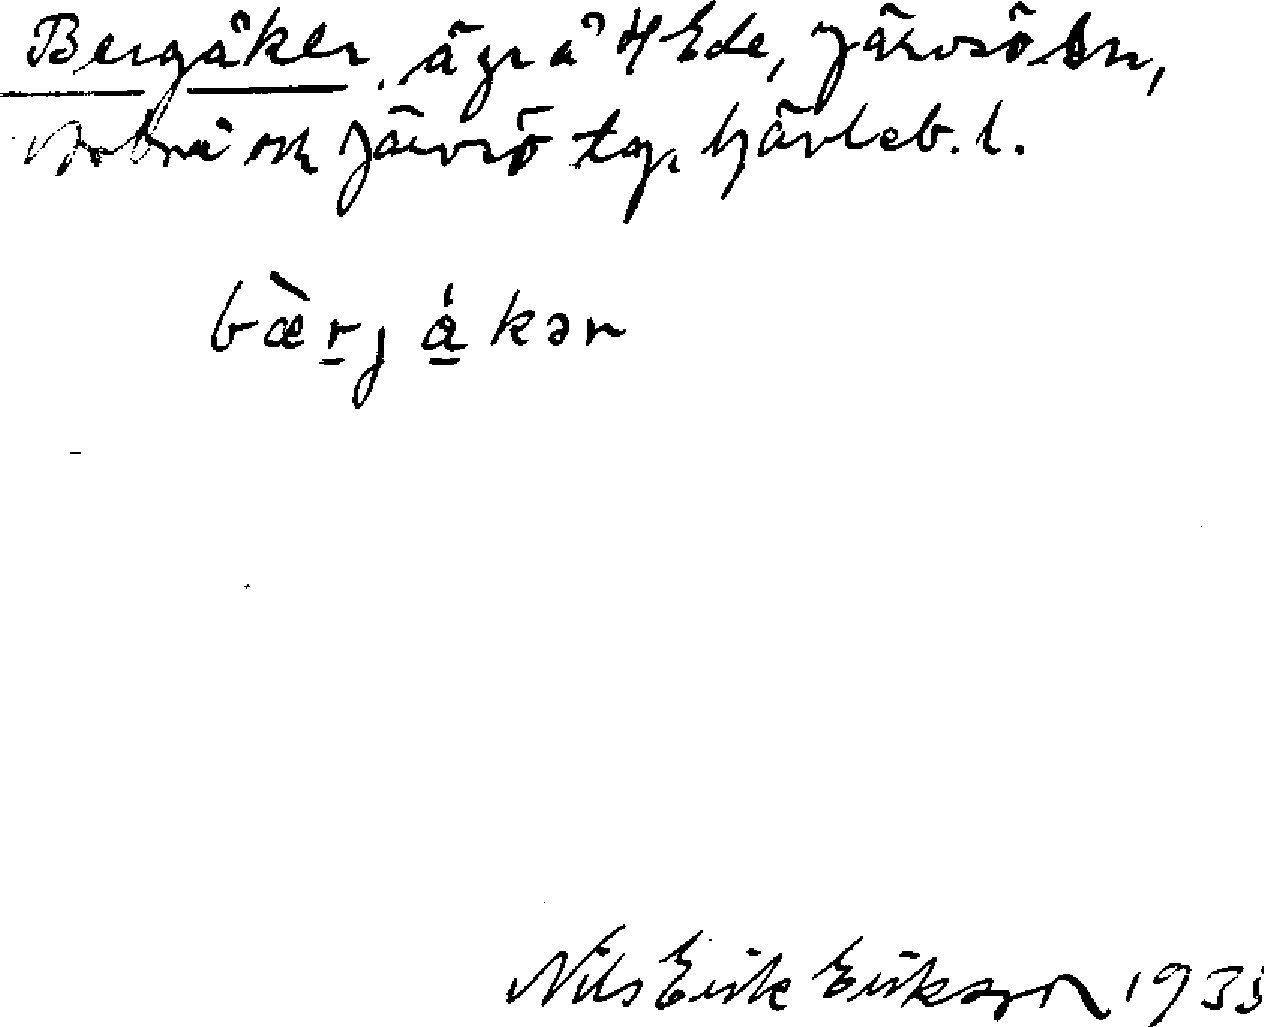 Bergåker, ägr å 4 Ede, Järvsö sn,
Arbrå och Järvsö tg. Gävleb. l.
bæ̀rjåkər
Nils Erik Erikson 1935